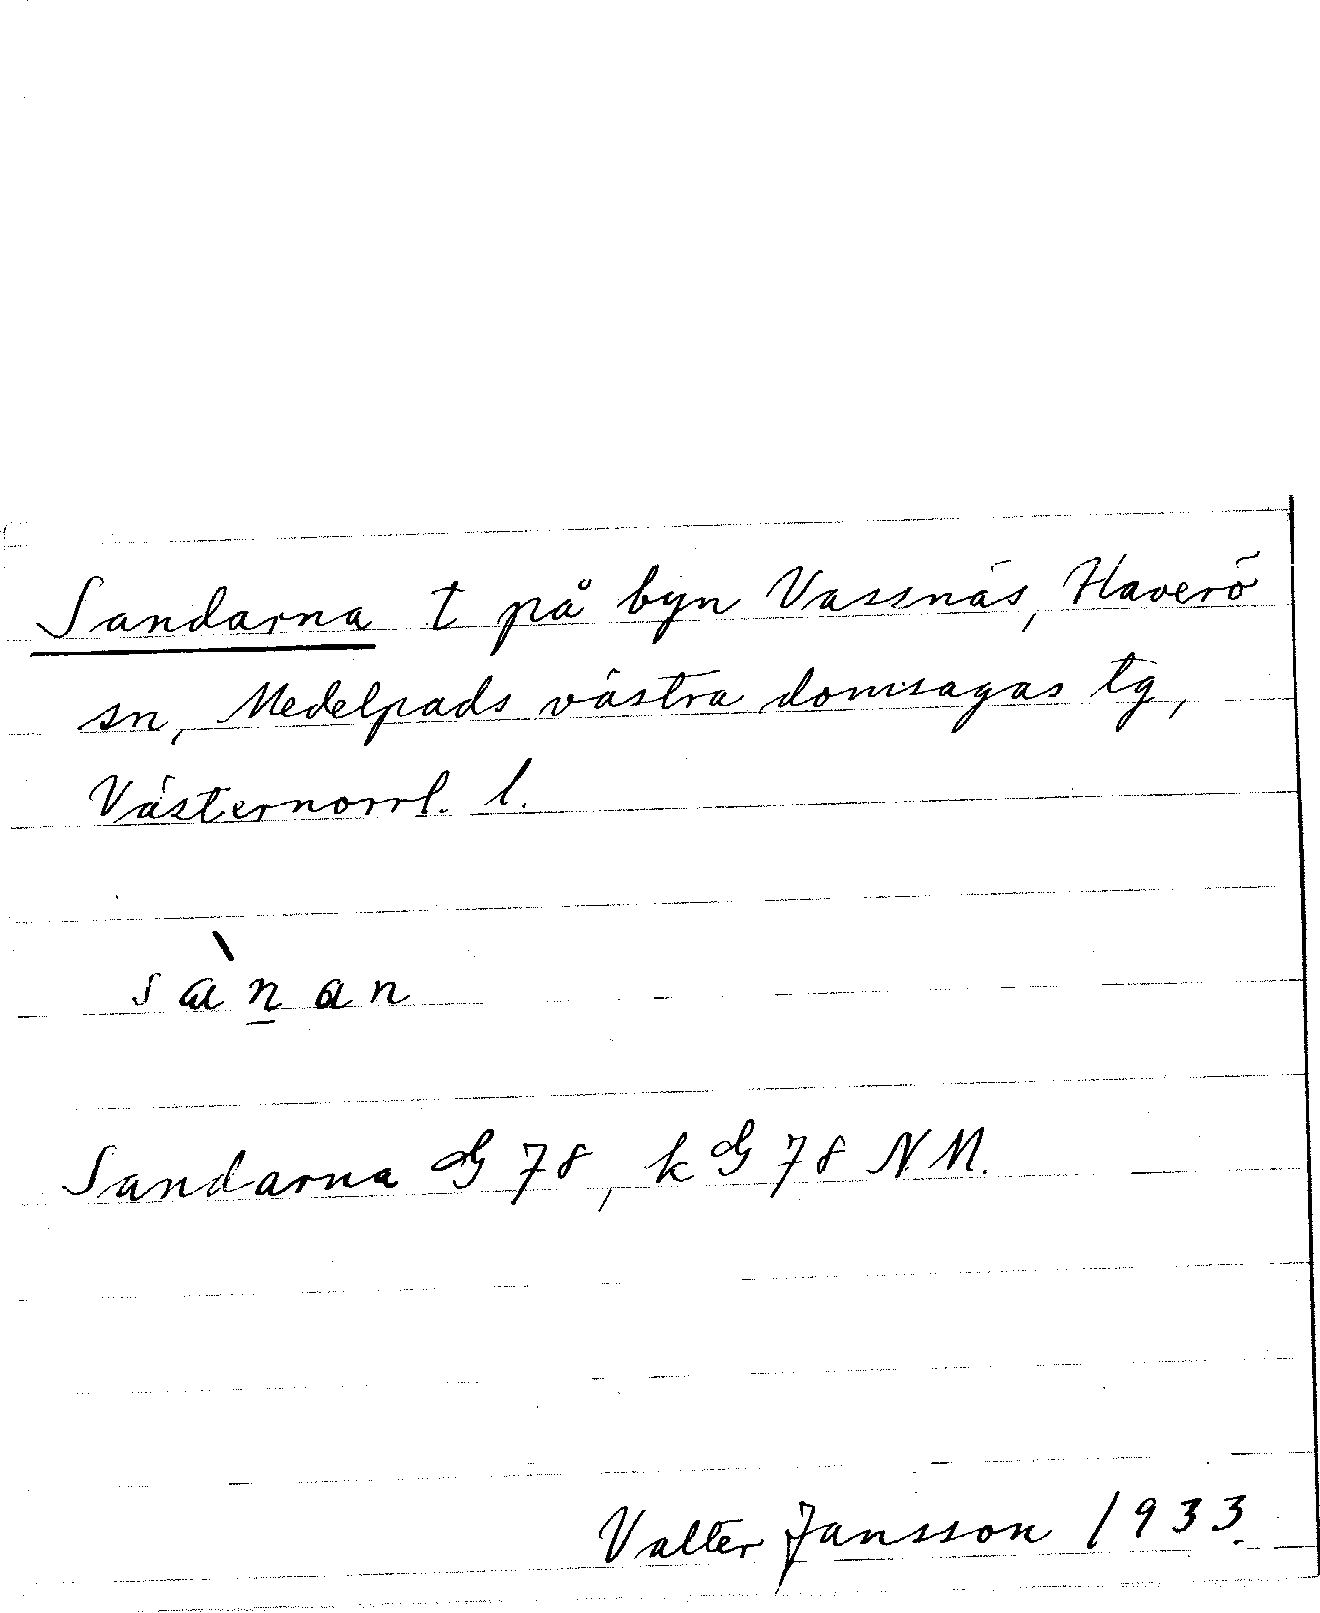 Sandarna t på byn Vassnäs, Haverö
sn, Medelpads västra domsagas tg,
Västernorrl. l.
sàn̲an
Sandarna G 78, k G 78 NM.
Valter Jansson 1933.